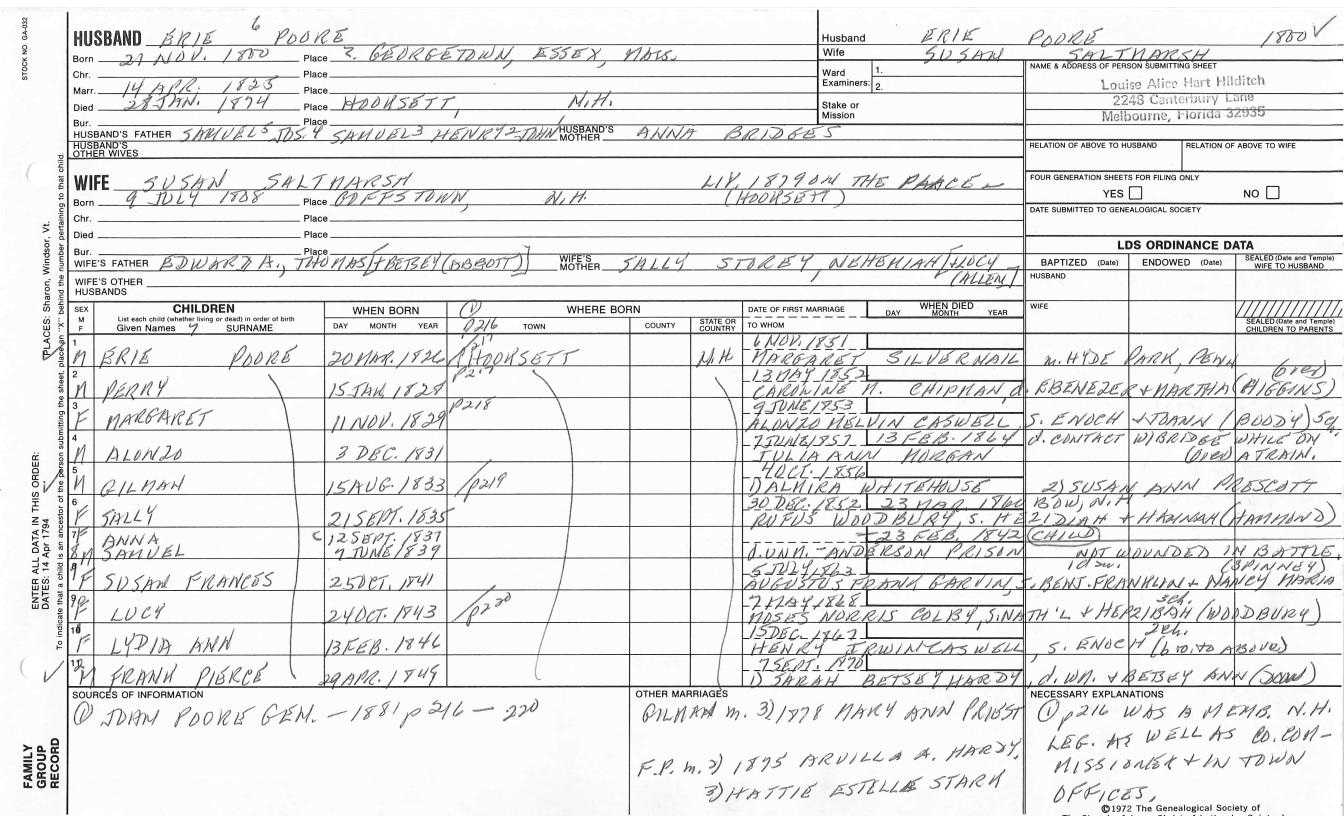 STOCK NO. GA-032
HUSBAND ERIE 6 POORE
Born 27 NOV. 1800 Place ?. GEORGETOWN, ESSEX, MASS.
Chr. Place
Marr. 14 APR. 1825 Place
Died 28 JAN. 1874 Place HOOKSETT, N.H.
Bur. Place
HUSBAND'S FATHER SAMUEL5 JOS4 SAMUEL3 HENRY2 JOHN HUSBAND'S MOTHER ANNA BRIDGES
HUSBAND'S OTHER WIVES
Husband ERIE POORE 1800 ✓
Wife SUSAN SALTMARSH
Ward Examiners: 1.
2.
Stake or Mission
NAME & ADDRESS OF PERSON SUBMITTING SHEET
Louise Alice Hart Hilditch
2248 Canterbury Lane
Melbourne, Florida 32935
RELATION OF ABOVE TO HUSBAND RELATION OF ABOVE TO WIFE
FOUR GENERATION SHEETS FOR FILING ONLY
YES NO
DATE SUBMITTED TO GENEALOGICAL SOCIETY
WIFE SUSAN SALTMARSH LIV. 1879 ON THE PLACE
Born 9 JULY 1808 Place GOFFSTOWN, N.H. (HOOKSETT)
Chr. Place
Died Place
Bur. Place
WIFE'S FATHER EDWARD A., THOMAS [+BETSEY (ABBOTT)] WIFE'S MOTHER SALLY STOREY, NEHEMIAH [+LUCY (ALLEN)]
WIFE'S OTHER HUSBANDS
LDS ORDINANCE DATA
BAPTIZED (Date) ENDOWED (Date) SEALED (Date and Temple) WIFE TO HUSBAND
HUSBAND
WIFE
SEALED (Date and Temple) CHILDREN TO PARENTS
SEX M F CHILDREN
List each child (whether living or dead) in order of birth
Given Names 7 SURNAME
WHEN BORN DAY MONTH YEAR
① p216 WHERE BORN TOWN COUNTY STATE OR COUNTRY
DATE OF FIRST MARRIAGE TO WHOM
WHEN DIED DAY MONTH YEAR
1 M ERIE POORE 20 MAR. 1826 p217 HOOKSETT N.H. 6 NOV. 1851 MARGARET SILVERNAIL m. HYDE PARK, PENN (over)
2 M PERRY 15 JAN. 1828 p217 13 MAY 1852 CAROLINE M. CHIPMAN, d. EBENEZER + MARTHA (HIGGINS)
3 F MARGARET 11 NOV. 1829 p218 9 JUNE 1853 ALONZO MELVIN CASWELL, S. ENOCH + JOANN (BOODY) 5ch.
4 M ALONZO 3 DEC. 1831 7 JUNE 1857 13 FEB. 1864 JULIA ANN MORGAN d. CONTACT W/BRIDGE WHILE ON (over) A TRAIN.
5 M GILMAN 15 AUG. 1833 p219 4 OCT. 1856 1) ALMIRA WHITEHOUSE 2) SUSAN ANN PRESCOTT
6 F SALLY 21 SEPT. 1835 30 DEC. 1852 23 MAR. 1860 BOW, N.H RUFUS WOODBURY, S. HEZIDIAH + HANNAH (HAMMOND)
7 F ANNA C 12 SEPT. 1837 + 23 FEB. 1842 (CHILD)
8 M SAMUEL 7 JUNE 1839 d. UNM. - ANDERSON PRISON NOT WOUNDED IN BATTLE.
F SUSAN FRANCES 25 OCT. 1841 5 JULY 1863 1dau. (SPINNEY) AUGUSTUS FRANK GARVIN, S. BENT. FRANKLIN + NANCY MARIA
9 F LUCY 24 OCT. 1843 p220 7 MAY 1868 3ch. MOSES NORRIS COLBY, S. NATH'L + HEPZIBAH (WOODBURY)
10 F LYDIA ANN 13 FEB. 1846 15 DEC. 1867 2ch. HENRY IRWIN CASWELL, S. ENOCH (bro. to above)
M FRANK PIERCE 29 APR. 1849 7 SEPT. 1870 1) SARAH BETSEY HARDY, d. WM. + BETSEY ANN
SOURCES OF INFORMATION
① JOHN POORE GEN. — 1881 p216 — 220
OTHER MARRIAGES
GILMAN m. 3) 1878 MARY ANN PRIEST
F.P. m. 2) 1875 ARVILLA A. HARDY,
3) HATTIE ESTELLE STARK
NECESSARY EXPLANATIONS
① p216 WAS A MEMB. N.H.
LEG. AS WELL AS CO. COM-
MISSIONER + IN TOWN
OFFICES,
©1972 The Genealogical Society of
ENTER ALL DATA IN THIS ORDER:
DATES: 14 Apr 1794
PLACES: Sharon, Windsor, Vt.
To indicate that a child is an ancestor of the person submitting the sheet, place an "X" behind the number pertaining to that child.
FAMILY GROUP RECORD